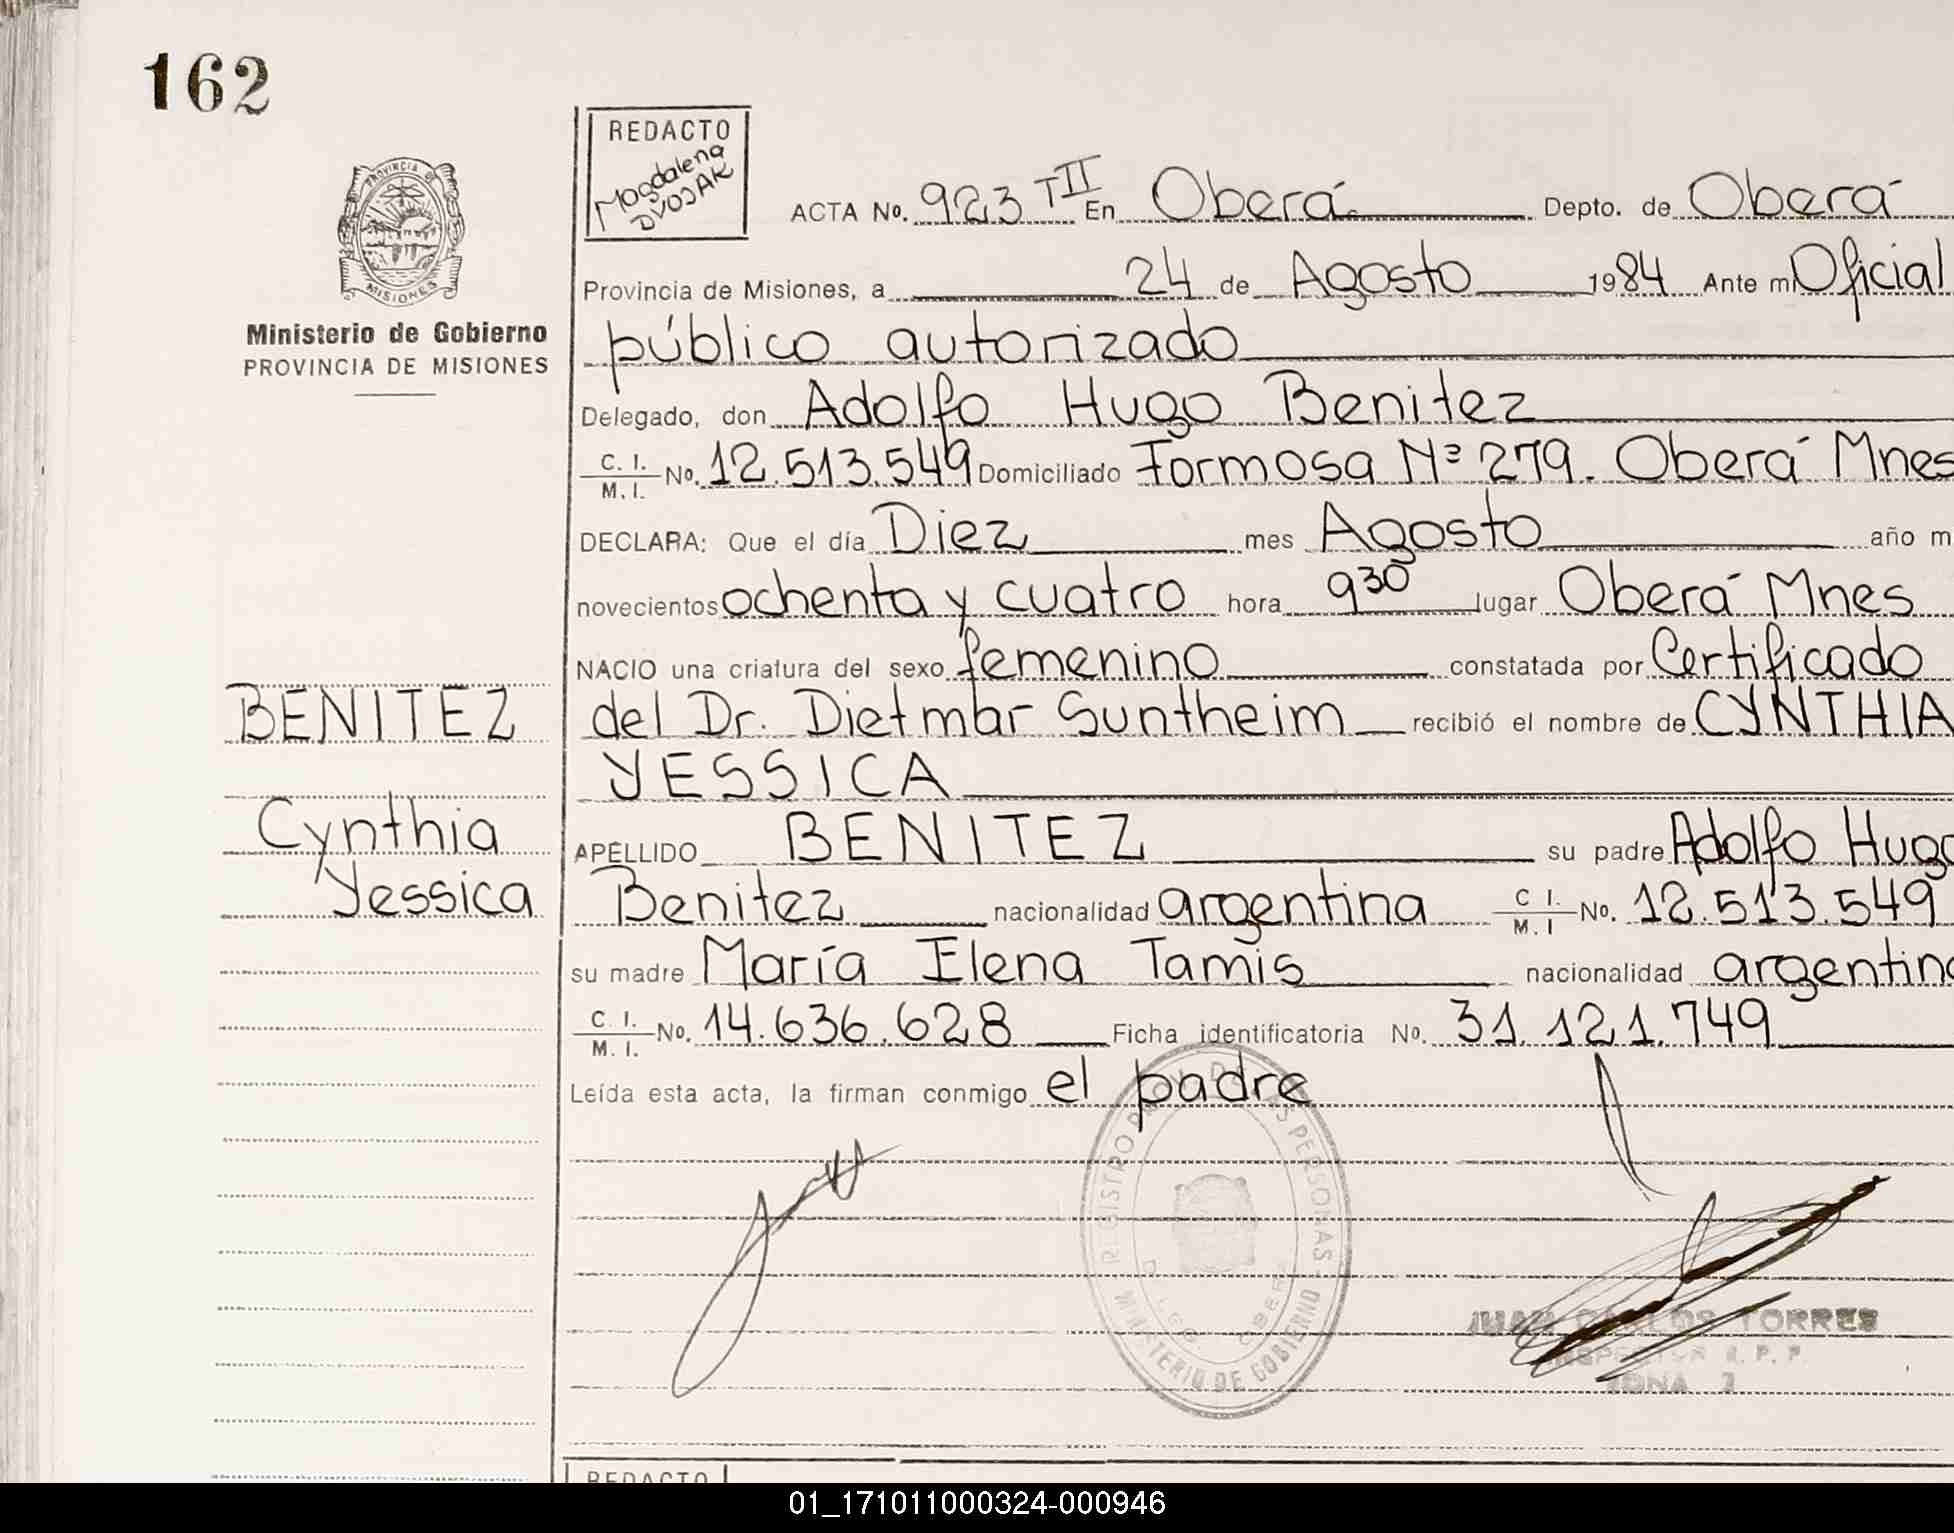 162
REDACTO
Magdalena
DVOJAK
ACTA No. 923 TII En Oberá Depto. de Oberá
PROVINCIA DE
MISIONES
Provincia de Misiones, a 24 de Agosto 1984 Ante mi Oficial
Ministerio de Gobierno
PROVINCIA DE MISIONES
público autorizado
Delegado, don Adolfo Hugo Benitez
C. I. / M. I. No. 12.513.549 Domiciliado Formosa Nº 279. Oberá Mnes
DECLARA: Que el día Diez mes Agosto año m
novecientos ochenta y cuatro hora 9 30 lugar Oberá Mnes
NACIO una criatura del sexo femenino constatada por Certificado
BENITEZ
del Dr. Dietmar Suntheim recibió el nombre de CYNTHIA
YESSICA
Cynthia
Yessica
APELLIDO BENITEZ su padre Adolfo Hugo
Benitez nacionalidad argentina C I. / M. I No. 12.513.549
su madre María Elena Tamis nacionalidad argentina
C. I. / M. I. No. 14.636.628 Ficha identificatoria No. 31.121.749
Leída esta acta, la firman conmigo el padre
REGISTRO PROV. DE LAS PERSONAS
MINISTERIO DE GOBIERNO
DELEG. OBERA
JUAN CARLOS TORRES
INSPECTOR R. P. P.
ZONA
REDACTO
01_171011000324-000946